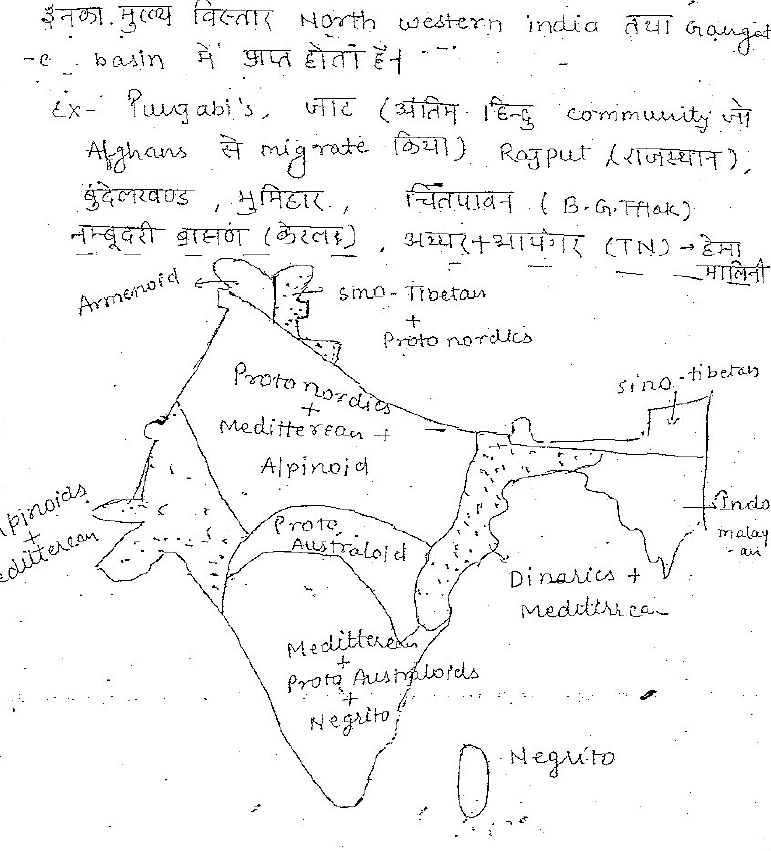 इनका मुख्य विस्तार North western india तथा Ganget
-c basin में प्राप्त होता है।
Ex- Punjabi's, जाट (अंतिम हिन्दु community जो
Afghans से migrate किया) Rajput (राजस्थान),
बुंदेलखण्ड, भुमिहार, चितपावन (B.G.Tilak)
नम्बूदरी ब्रासण (केरल), अय्यर+आयंगर (TN) → हेमा
मालिनी
Armenoid
Sino-Tibetan
+
Proto nordics
Proto nordics
+
Meditterean +
Alpinoid
sino-tibetan
Alpinoids
+
Meditterean
Proto
Australoid
Indo
malay
-an
Dinarics +
Meditirrean
Meditterean
+
Proto Australoids
+
Negrito
Negrito